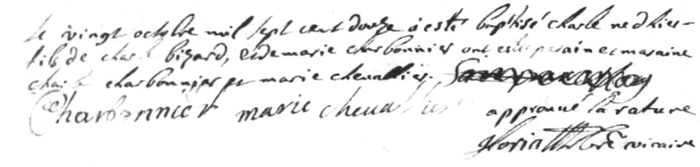 le vingt octobre mil sept cent douze a esté baptisé charle né d'hier
fils de charle bizard, et de marie charbonnier ont esté parain et maraine
charle charbonnier et marie chevallier
Charbonnier marie chevallier approuve la rature
vicaire